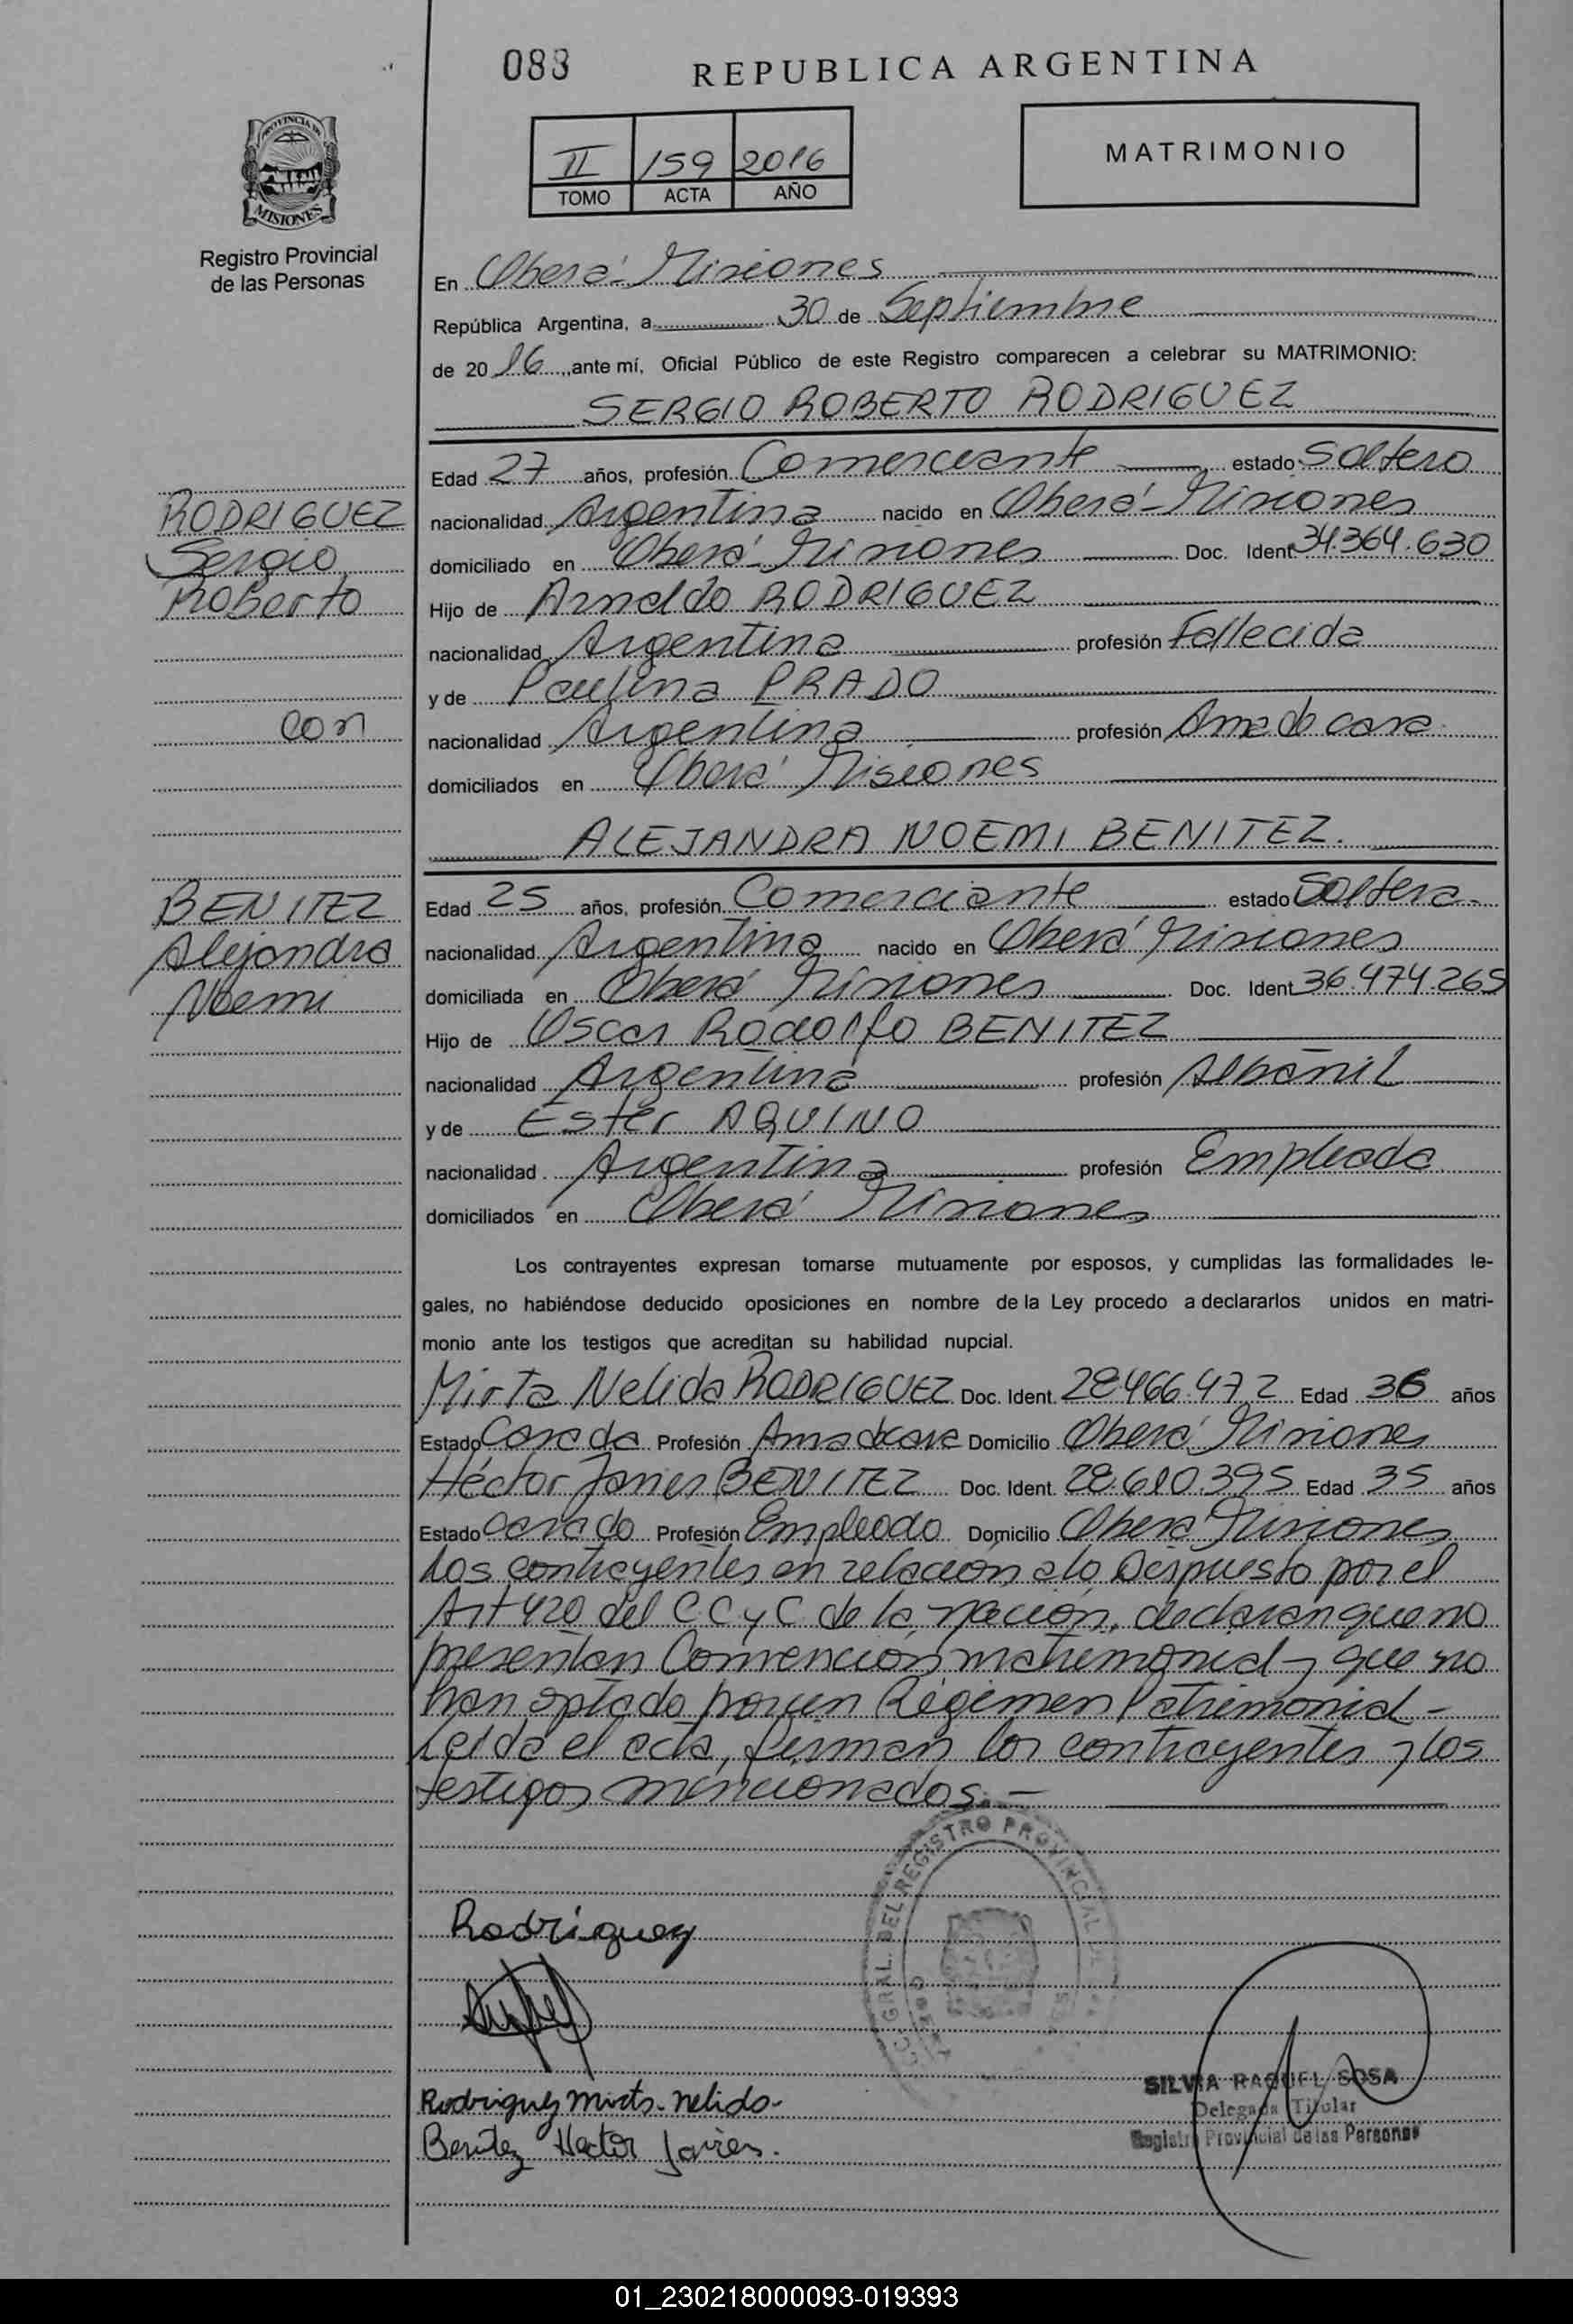 083
REPUBLICA ARGENTINA
II 159 2016
TOMO ACTA AÑO
MATRIMONIO
PROVINCIA DE
MISIONES
Registro Provincial
de las Personas
En Oberá - Misiones
República Argentina, a 30 de Septiembre
de 2016, ante mí, Oficial Público de este Registro comparecen a celebrar su MATRIMONIO:
SERGIO ROBERTO RODRIGUEZ
Edad 27 años, profesión Comerciante estado Soltero
RODRIGUEZ
Sergio
Roberto
nacionalidad Argentina nacido en Oberá - Misiones
domiciliado en Oberá - Misiones Doc. Ident. 34.364.630
Hijo de Arnaldo RODRIGUEZ
nacionalidad Argentina profesión Fallecida
y de Paulina PRADO
con
nacionalidad Argentina profesión Ama de casa
domiciliados en Oberá Misiones
ALEJANDRA NOEMI BENITEZ.
BENITEZ
Alejandra
Noemi
Edad 25 años, profesión Comerciante estado Soltera.
nacionalidad Argentina nacido en Oberá Misiones
domiciliada en Oberá Misiones Doc. Ident 36.474.265
Hijo de Oscar Rodolfo BENITEZ
nacionalidad Argentina profesión Albañil
y de Ester AQUINO
nacionalidad Argentina profesión Empleada
domiciliados en Oberá Misiones
Los contrayentes expresan tomarse mutuamente por esposos, y cumplidas las formalidades le-
gales, no habiéndose deducido oposiciones en nombre de la Ley procedo a declararlos unidos en matri-
monio ante los testigos que acreditan su habilidad nupcial.
Mirta Nelida RODRIGUEZ Doc. Ident. 28.466.472 Edad 36 años
Estado Casada Profesión Ama de casa Domicilio Oberá Misiones
Héctor Javier BENITEZ Doc. Ident. 28.610.395 Edad 35 años
Estado casado Profesión Empleado Domicilio Oberá Misiones
Los contrayentes en relación a lo Dispuesto por el
Art 420 del C.C y C de la nación, declaran que no
presentan Convención matrimonial y que no
han optado por un Régimen Patrimonial -
Leída el acta, firman los contrayentes y los
testigos mencionados. -
GRAL. DEL REGISTRO PROVINCIAL
Rodriguez
Rodriguez Mirta. Nelida.
Benitez Hector Javier.
SILVIA RAQUEL SOSA
Delegada Titular
Registro Provincial de las Personas
01_230218000093-019393